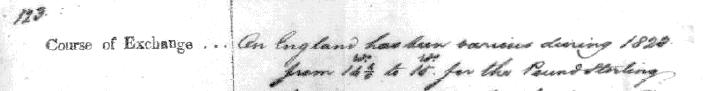 123.
Course of Exchange ... On England has been various during 1823
from 14½ to 15. for the Pound Sterling